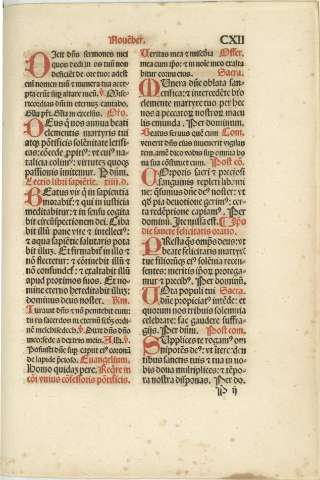 Nouēber.
CXII
DIcit dn̄s sermones mei
quos dedi in os tuū non
deficiēt de ore tuo: adest
eni nomen tuū ⁊ munera tua acce
pta erūt sup altare meū. Ps̄. Mise
ricordias dn̄i in eternuȝ cantabo.
Gl̄a pr̄i. Gl̄a in excelsis. Or̄o.
DEus q̄ nos annua beati
clementis martyris tui
atqȝ pōtificis solēnitate letifi
cas: cōcede ppiti⁹: vt cui⁹ na
talicia colim⁹: virtuteȝ quoqȝ
passionis imitemur. P̄ dn̄m.
Lectio libri sapiētie.
BEatus vir q̄ in sapientia
morabit̄: ⁊ qui in iusticia
meditabitur: ⁊ in sensu cogita
bit circūspectionem dei. Ciba
bit illū pane vite ⁊ intellect⁹:
⁊ aqua sapiētie salutaris pota
bit illuȝ. Et firmabit̄ in illo ⁊
nō flectetur: ⁊ cōtinebit illuȝ ⁊
nō confundet̄: ⁊ exaltabit illuȝ
apud proximos suos. Et no
mine eterno hereditabit illuȝ:
dominus deus noster.
Iurauit dn̄s ⁊ nō penitebit eum:
tu es sacerdos in eternū: scdȝ ordi
nē melchisedech. Dixit dn̄s dn̄o
meo: sede a dextris meis. All̄a.
Posuisti dn̄e sup caput ei⁹ coronā
de lapide p̄cioso. Euangelium.
Homo quidaȝ pere. Req̄re in
cōi vnius cōfessoris pōtificis.
Veritas mea ⁊ mīa Offer.
mea cum ip̄o: ⁊ in noīe meo exalta
bitur cornu eius. Sacra.
MUnera dn̄e oblata san-
ctifica: ⁊ intercedente btō
clemente martyre tuo: per hec
nos a peccatoȝ nostroȝ macu
lis emunda. Per dominum.
Beatus seruus quē cum Com.
venerit dn̄s inuenerit vigilan
tem. amē dico vobis sup omnia bo
na sua cōstituet eum. Post cōi.
COrporis sacri ⁊ preciosi
sanguinis repleti libami
ne: q̄sumus dn̄e de⁹ noster: vt
qd̄ pia deuotione gerim⁹: cer
ta redēptione capiam⁹. Per
dominū.
die sancte felicitatis oratio.
PResta q̄s omp̄s deus: vt
beate felicitatis martyris
tue filiorūqȝ ei⁹ solēnia recen-
sentes: meritis ip̄orȝ protega-
mur ⁊ precib⁹. Per dominū.
UOta populi tui Sacra.
dn̄e propiciat⁹ intēde: et
quorum nos tribuis solemnia
celebrare: fac gaudere suffra-
giis. Per dn̄m. Post com.
SUpplices te rogam⁹ om
nipotēs de⁹: vt interceden
tibus sanctis tuis ⁊ tua in no
bis dona multiplices: ⁊ tēpo-
ra nostra disponas. Per do.
P ij